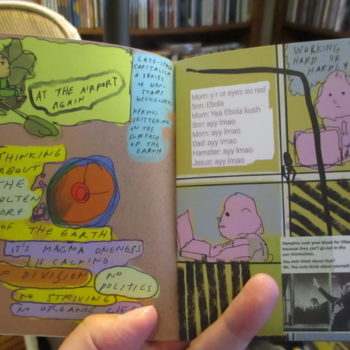 AT THE AIRPORT
AGAIN
LATE-STAGE
CAPITALISM
A SERIES
OF NON-
START
SKITTERING
ON THE
SURFACE
OF THE
EARTH
THINKING
ABOUT
THE
MOLTEN
CORE
OF THE EARTH
IT'S MAGMA ONENESS
IS CALMING
NO DIVISION
NO
POLITICS
NO STRIVING
NO ORGANIC LIFE
Mom: y r ur eyes so red
Son: Ebola
Mom: Yea Ebola kush
Son: ayy lmao
Mom: ayy lmao
Dad: ayy lmao
Hamster: ayy lmao
Jesus: ayy lmao
WORKING
HARD OR
HARDLY
Vampires suck your blood for
because they can't go out in the
sun themselves.
You ever think about that?
Me: You only think about yourself